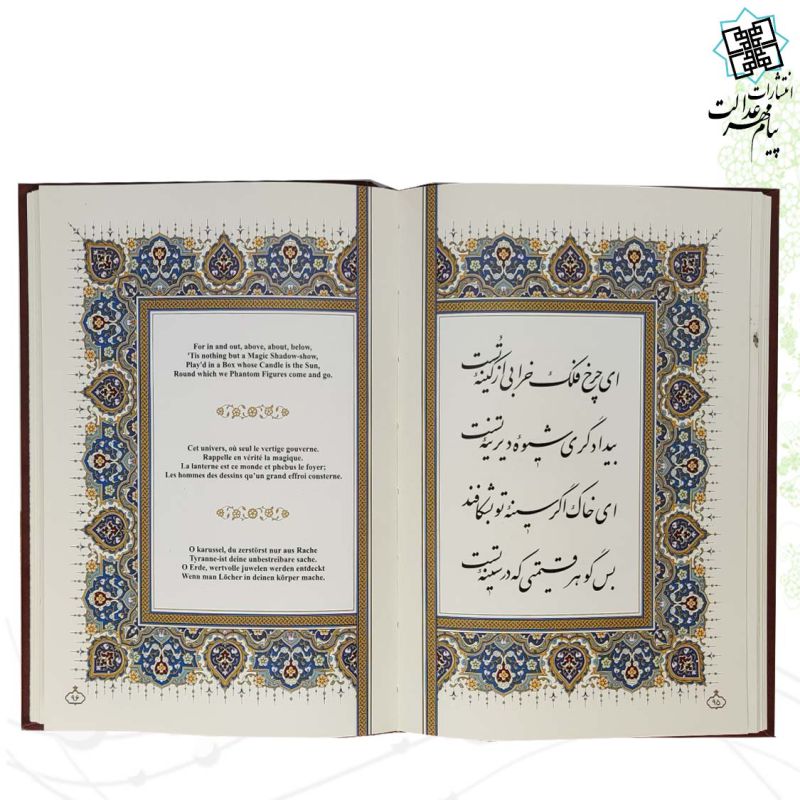 انتشارات
پیام مهر عدالت
ای چرخ فلک خرابی از کینهٔ تست
بیدادگری شیوهٔ دیرینهٔ تست
ای خاک اگر سینهٔ تو بشکافند
بس گوهر قیمتی که در سینهٔ تست
۹۵
For in and out, above, about, below,
'Tis nothing but a Magic Shadow-show,
Play'd in a Box whose Candle is the Sun,
Round which we Phantom Figures come and go.
Cet univers, où seul le vertige gouverne.
Rappelle en vérité la magique.
La lanterne est ce monde et phebus le foyer;
Les hommes des dessins qu'un grand effroi consterne.
O karussel, du zerstörst nur aus Rache
Tyranne-ist deine unbestreibare sache.
O Erde, wertvolle juwelen werden entdeckt
Wenn man Löcher in deinen körper mache.
۹۶